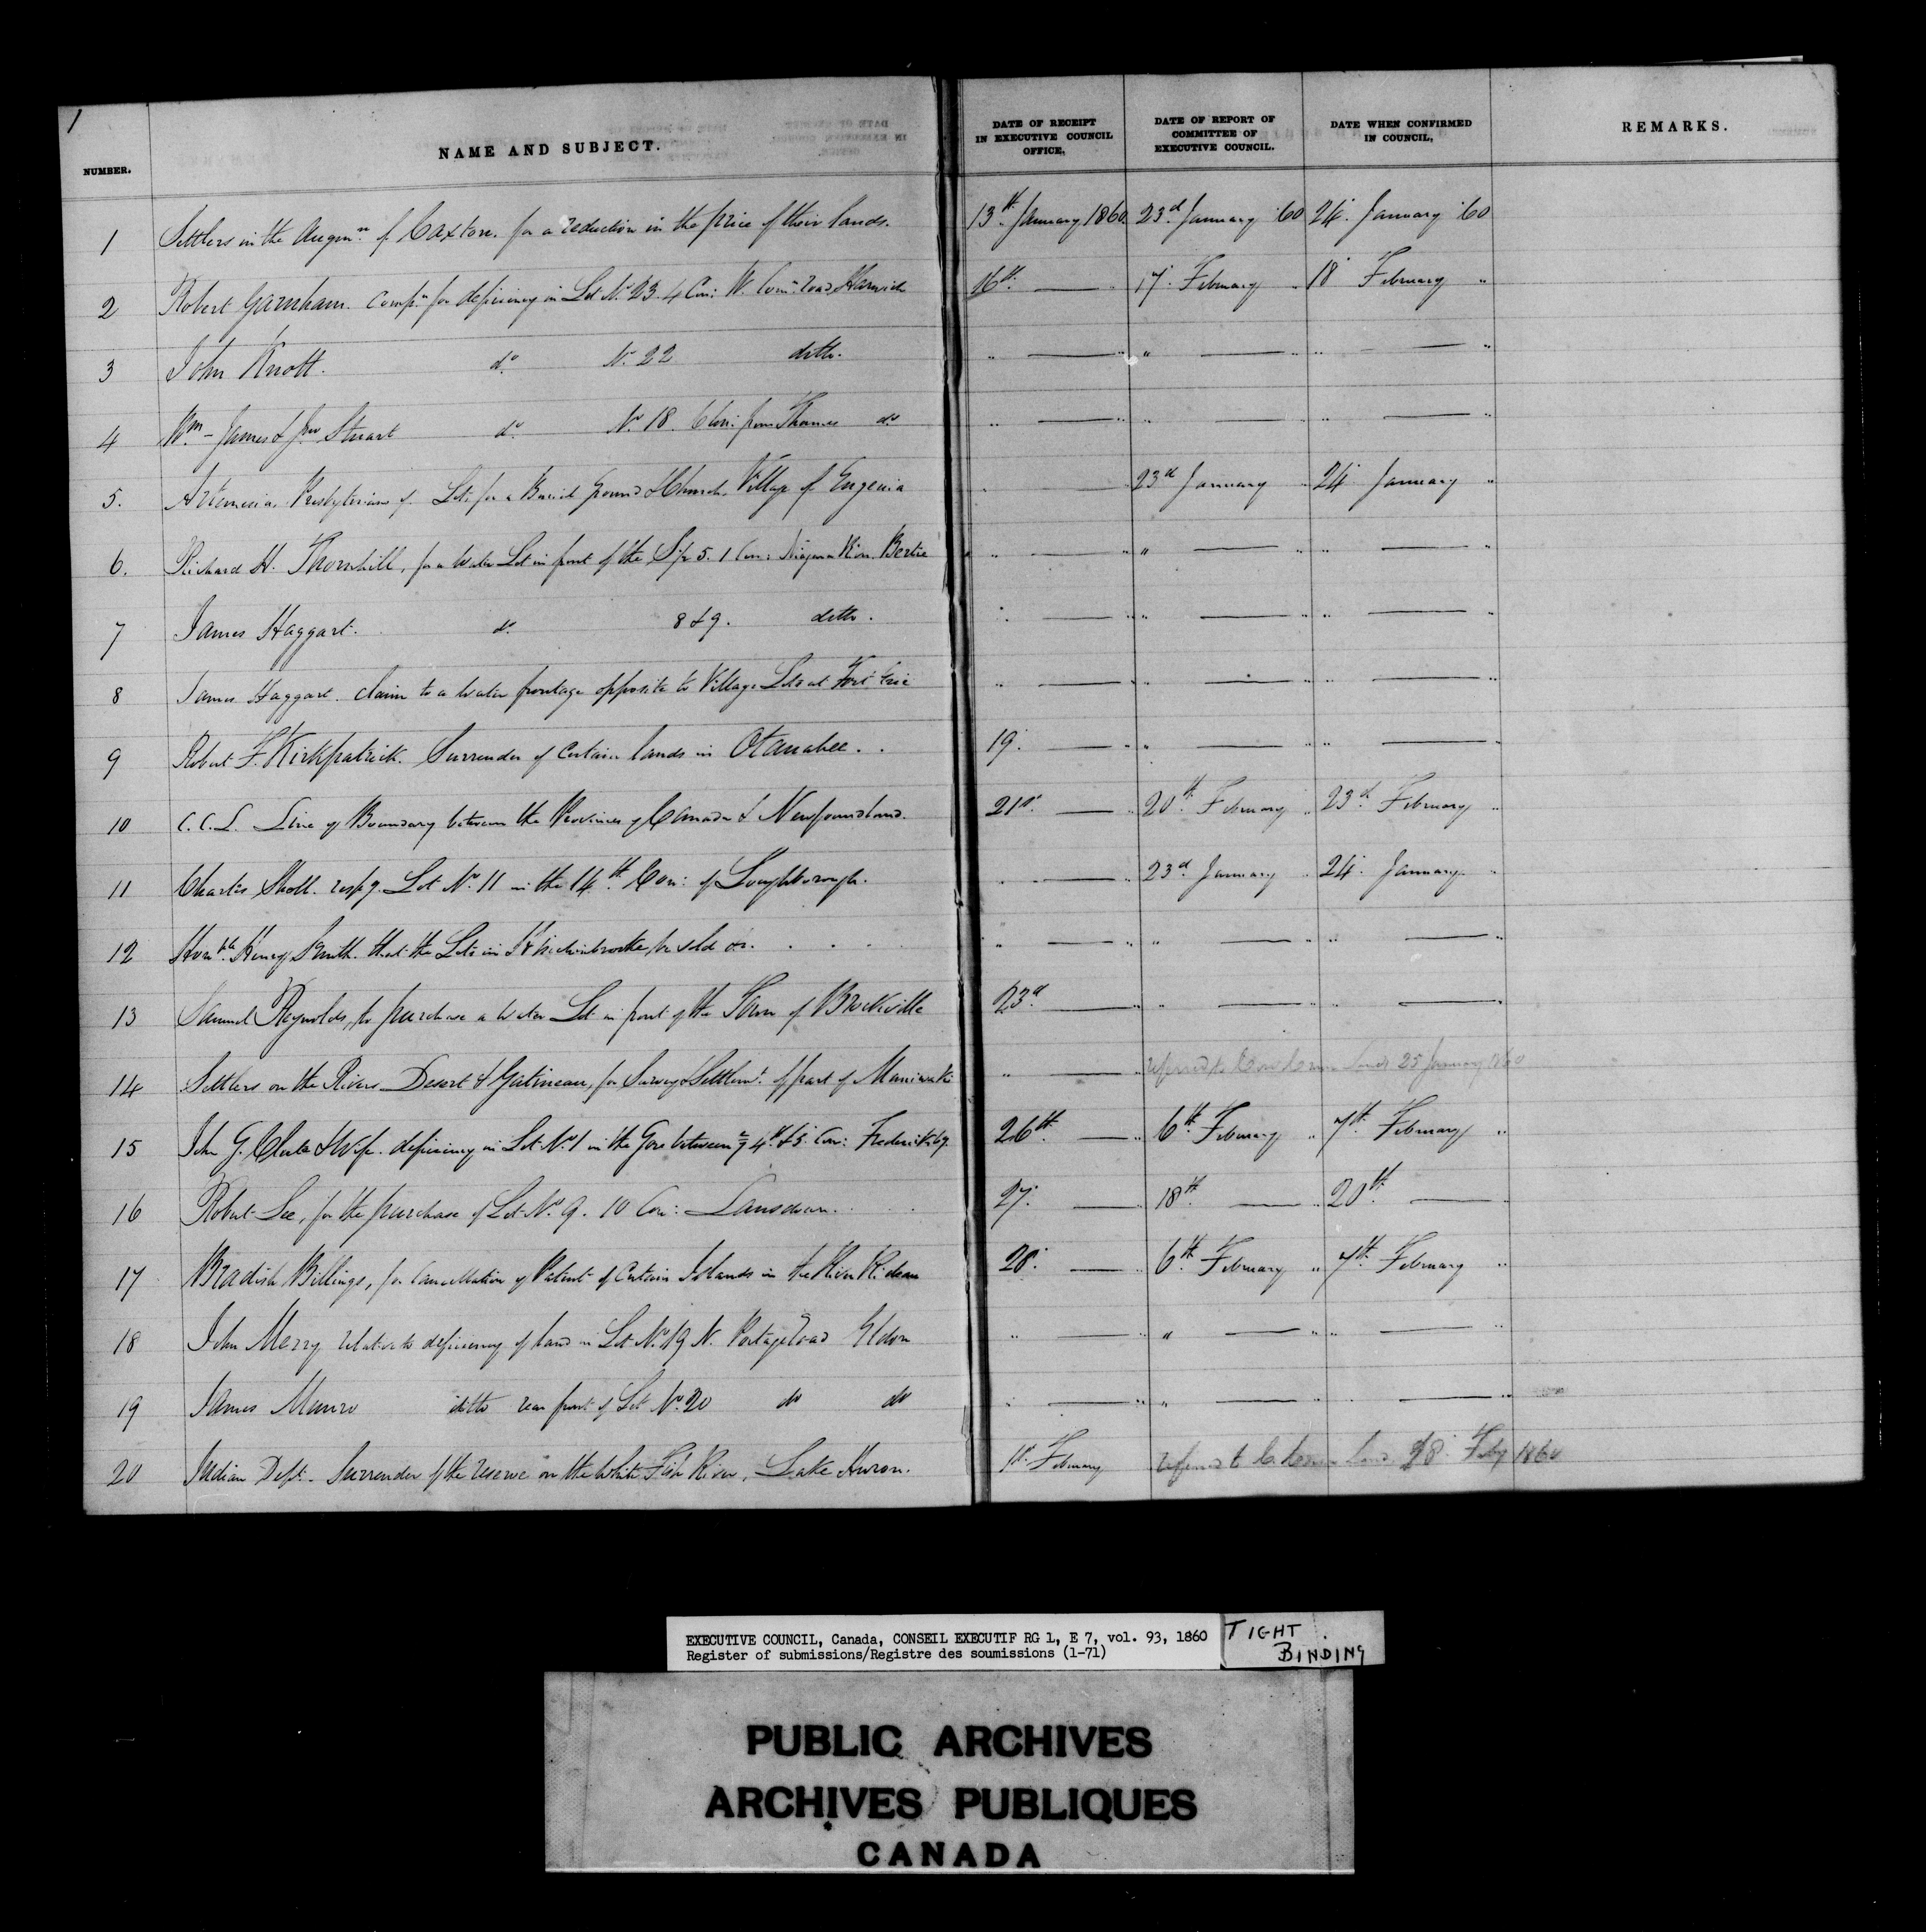 1
NUMBER. NAME AND SUBJECT. DATE OF RECEIPT IN EXECUTIVE COUNCIL OFFICE, DATE OF REPORT OF COMMITTEE OF EXECUTIVE COUNCIL. DATE WHEN CONFIRMED IN COUNCIL, REMARKS.
1 Settlers in the Augmn. of Caxton. for a reduction in the price of their lands. 13th January 1860. 23d January '60 24. January '60
2 Robert Garnham. Compn. for deficiency in Lot No. 23. 4 Con: W. Comn. road Harwich 16th. — " 17. February " 18 February "
3 John Knott. do. No. 22 ditto. " — " " — " " — "
4 Wm. James & Jno Stuart do. No. 18. 6 Con: from Thames do " — " " — " " — "
5. Artemesia, Presbyterians of. Lots for a Burial Ground & Church. Village of Eugenia " — 23rd January " 24 January "
6. Richard H. Thornhill, for a Water Lot in front of the 5. 1 Con: Niagara River Bertie " — " " — " " — "
7 James Haggart. do. 8 & 9. ditto. " — " " — " " — "
8 James Haggart. claim to a water frontage opposite to Village Lots at Fort Erie " — " " — " " — "
9 Robert F. Kirkpatrick. Surrender of Certain lands in Otanabee. . 19. — " " — " " — "
10 C. C. L. Line of Boundary between the Provinces of Canada & Newfoundland. 21st. — " 20th. February " 23d February "
11 Charles Sholl. respg. Lot No. 11 in the 14th. Con: of Loughborough. " — " 23d. January " 24. January "
12 Honble. Henry Smith. that the Lots in Hinchinbrooke, be sold &c. . . . " — " " — " " — "
13 Samuel Reynolds, to purchase a Water Lot in front of the Town of Brockville 23d — " " — " " — "
14 Settlers on the Rivers Desert & Gatineau, for Survey & Settlemt. of part of Maniwaki " — " referred to Com Crown Lands 25 January 1860
15 John G. Clute & Wife. deficiency in Lot No. 1 in the Gore between 4th. & 5. Con: Frederiksbg. 26th. — " 6th. February " 7th. February "
16 Robert Lee, for the purchase of Lot No. 9. 10 Con: Lansdown. . . . 27. — " 18th. — " 20th. —
17 Bradish Billings, for Cancellation of Patent of Certain Islands in the River Rideau 28. — " 6th. February " 7th. February "
18 John Merry relative to deficiency of land in Lot No. 19 N. Portage road Eldon " — " " — " " — "
19 James Munro ditto rear part of Lot No. 20 do do " — " " — " " — "
20 Indian Dept. Surrender of the reserve on the White Fish River, Lake Huron. 1st. February referred to C. Crown Land 28. Feby 1860
EXECUTIVE COUNCIL, Canada, CONSEIL EXECUTIF RG 1, E 7, vol. 93, 1860
Register of submissions/Registre des soumissions (1-71)
TIGHT BINDING
PUBLIC ARCHIVES
ARCHIVES PUBLIQUES
CANADA